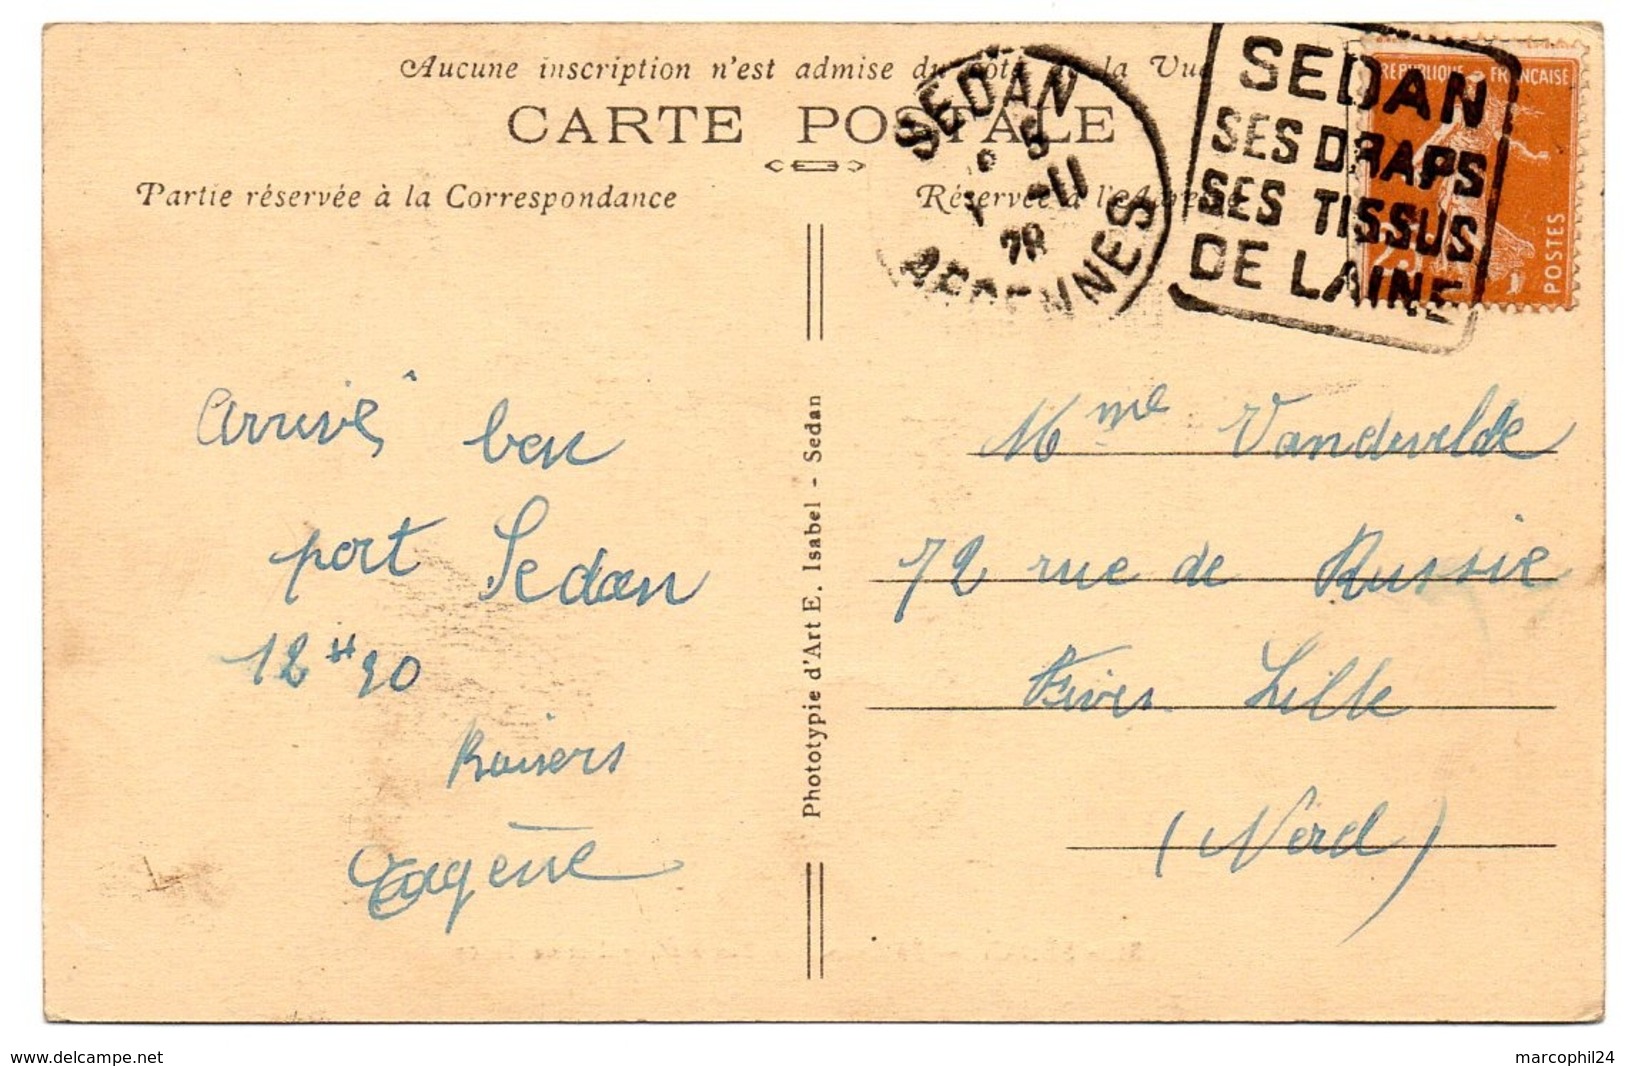 Aucune inscription n'est admise du côté de la Vue
CARTE POSTALE
Partie réservée à la Correspondance
Réservée à l'Adresse
SEDAN
5
-11
28
ARDENNES
SEDAN
SES DRAPS
SES TISSUS
DE LAINE
REPUBLIQUE FRANÇAISE
25c
POSTES
Arrivé ben
port Sedan
12 H 20
Baisers
Eugène
Phototypie d'Art E. Isabel - Sedan
Mme Vandevelde
72 rue de Russie
Fives Lille
(Nord)
www.delcampe.net
marcophil24